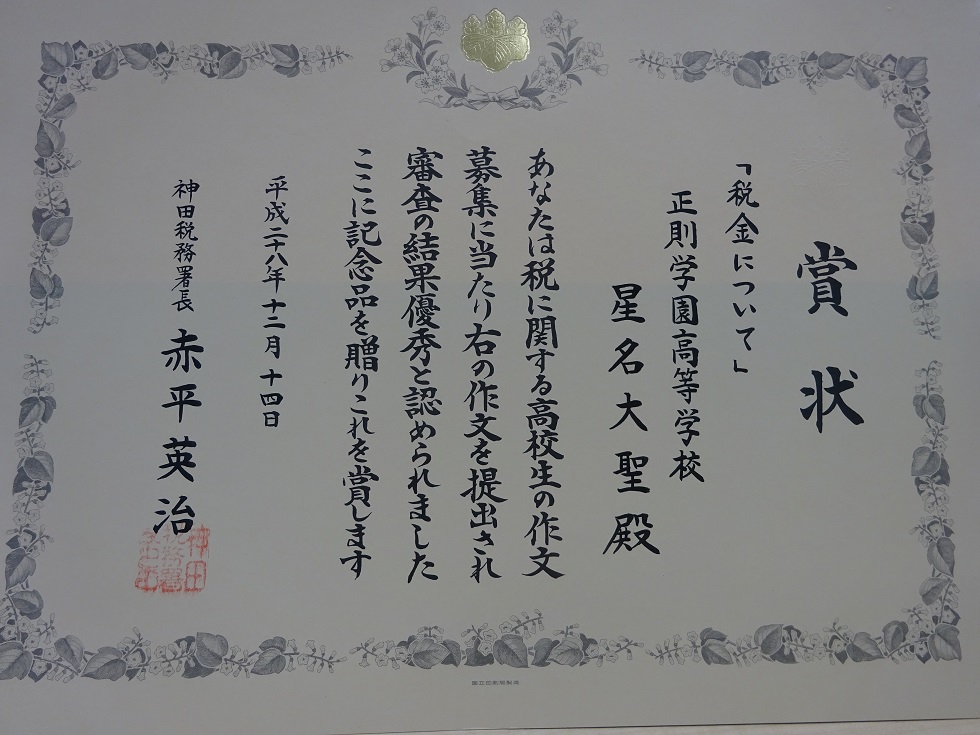 賞状
「税金について」
正則学園高等学校
星名大聖殿
あなたは税に関する高校生の作文
募集に当たり右の作文を提出され
審査の結果優秀と認められました
ここに記念品を贈りこれを賞します
平成二十八年十二月十四日
神田税務署長 赤平英治
神田税務署